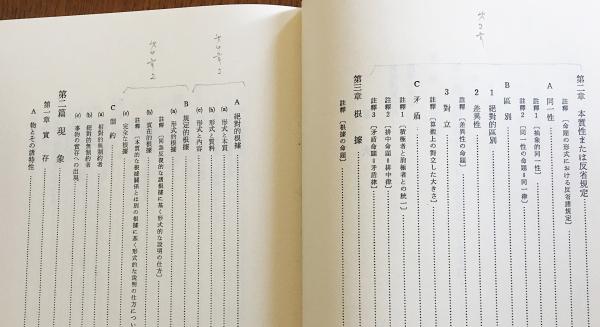 第二章 本質性または反省規定
註釋〔命題の形式における反省諸規定〕
A 同一性
註釋1〔抽象的同一性〕
註釋2〔同一性の命題=同一律〕
B 區別
1 絶對的區別
2 差異性
註釋〔差異性の命題〕
3 對立
註釋〔算數上の對立した大きさ〕
C 矛盾
註釋1〔積極者と消極者との統一〕
註釋2〔排中命題=排中律〕
註釋3〔矛盾命題=矛盾律〕
第三章 根據
註釋〔根據の命題〕
A 絶對的根據
(a) 形式と本質
(b) 形式と質料
(c) 形式と内容
B 規定的根據
(a) 形式的根據
註釋〔同語反復的な諸根據に基く形式的な説明の仕方〕
(b) 實在的根據
註釋〔本質的な根據關係とは別の根據に基く形式的な説明の仕方につい
(c) 完全な根據
C 制約
(a) 相對的無制約者
(b) 絶對的無制約者
(c) 事物の實存への出現
第二篇 現象
第一章 實存
A 物とその諸特性